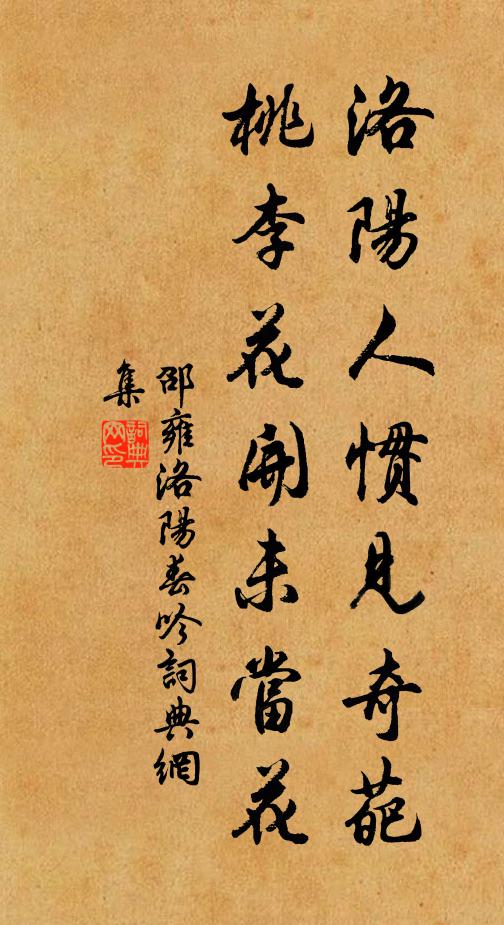 洛陽人慣見奇葩
桃李花開未當花
邵雍洛陽春吟詞典網
集
詞典網印